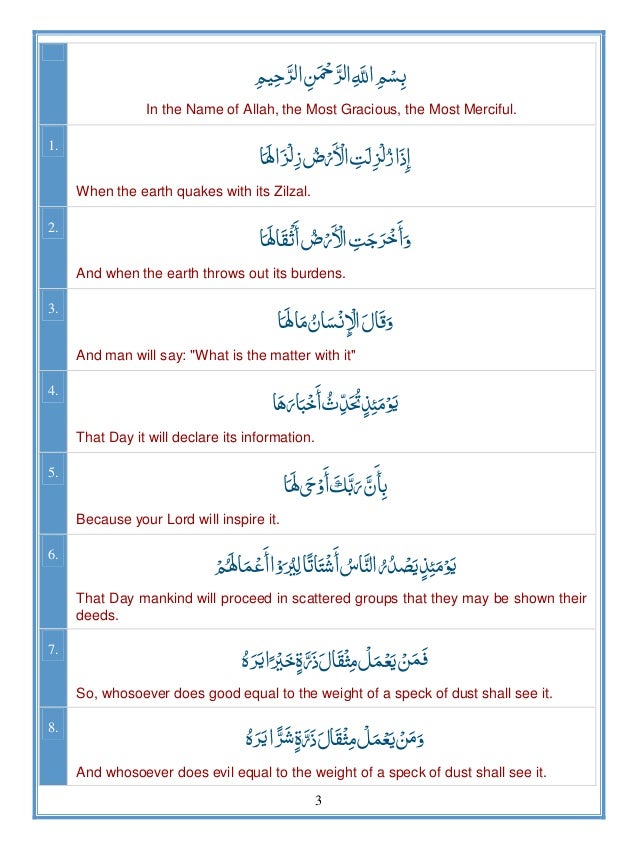 بِسْمِ اللَّهِ الرَّحْمَنِ الرَّحِيمِ
In the Name of Allah, the Most Gracious, the Most Merciful.
1.
إِذَا زُلْزِلَتِ الْأَرْضُ زِلْزَالَهَا
When the earth quakes with its Zilzal.
2.
وَأَخْرَجَتِ الْأَرْضُ أَثْقَالَهَا
And when the earth throws out its burdens.
3.
وَقَالَ الْإِنْسَانُ مَا لَهَا
And man will say: "What is the matter with it"
4.
يَوْمَئِذٍ تُحَدِّثُ أَخْبَارَهَا
That Day it will declare its information.
5.
بِأَنَّ رَبَّكَ أَوْحَى لَهَا
Because your Lord will inspire it.
6.
يَوْمَئِذٍ يَصْدُرُ النَّاسُ أَشْتَاتًا لِيُرَوْا أَعْمَالَهُمْ
That Day mankind will proceed in scattered groups that they may be shown their
deeds.
7.
فَمَنْ يَعْمَلْ مِثْقَالَ ذَرَّةٍ خَيْرًا يَرَهُ
So, whosoever does good equal to the weight of a speck of dust shall see it.
8.
وَمَنْ يَعْمَلْ مِثْقَالَ ذَرَّةٍ شَرًّا يَرَهُ
And whosoever does evil equal to the weight of a speck of dust shall see it.
3